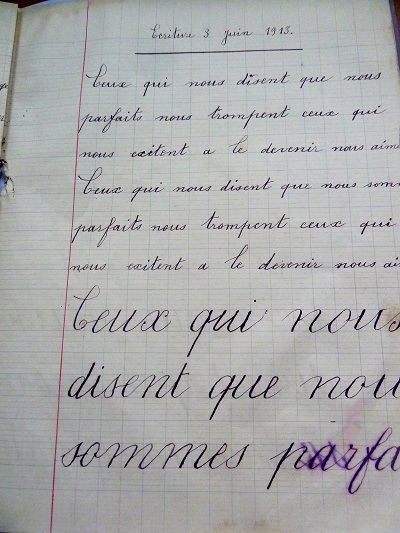 Ecriture 3 juin 1913.
Ceux qui nous disent que nous
parfaits nous trompent ceux qui
nous exitent a le devenir nous aime
Ceux qui nous disent que nous somm
parfaits nous trompent ceux qui
nous exitent a le devenir nous ai
Ceux qui nous
disent que nou
sommes parfa